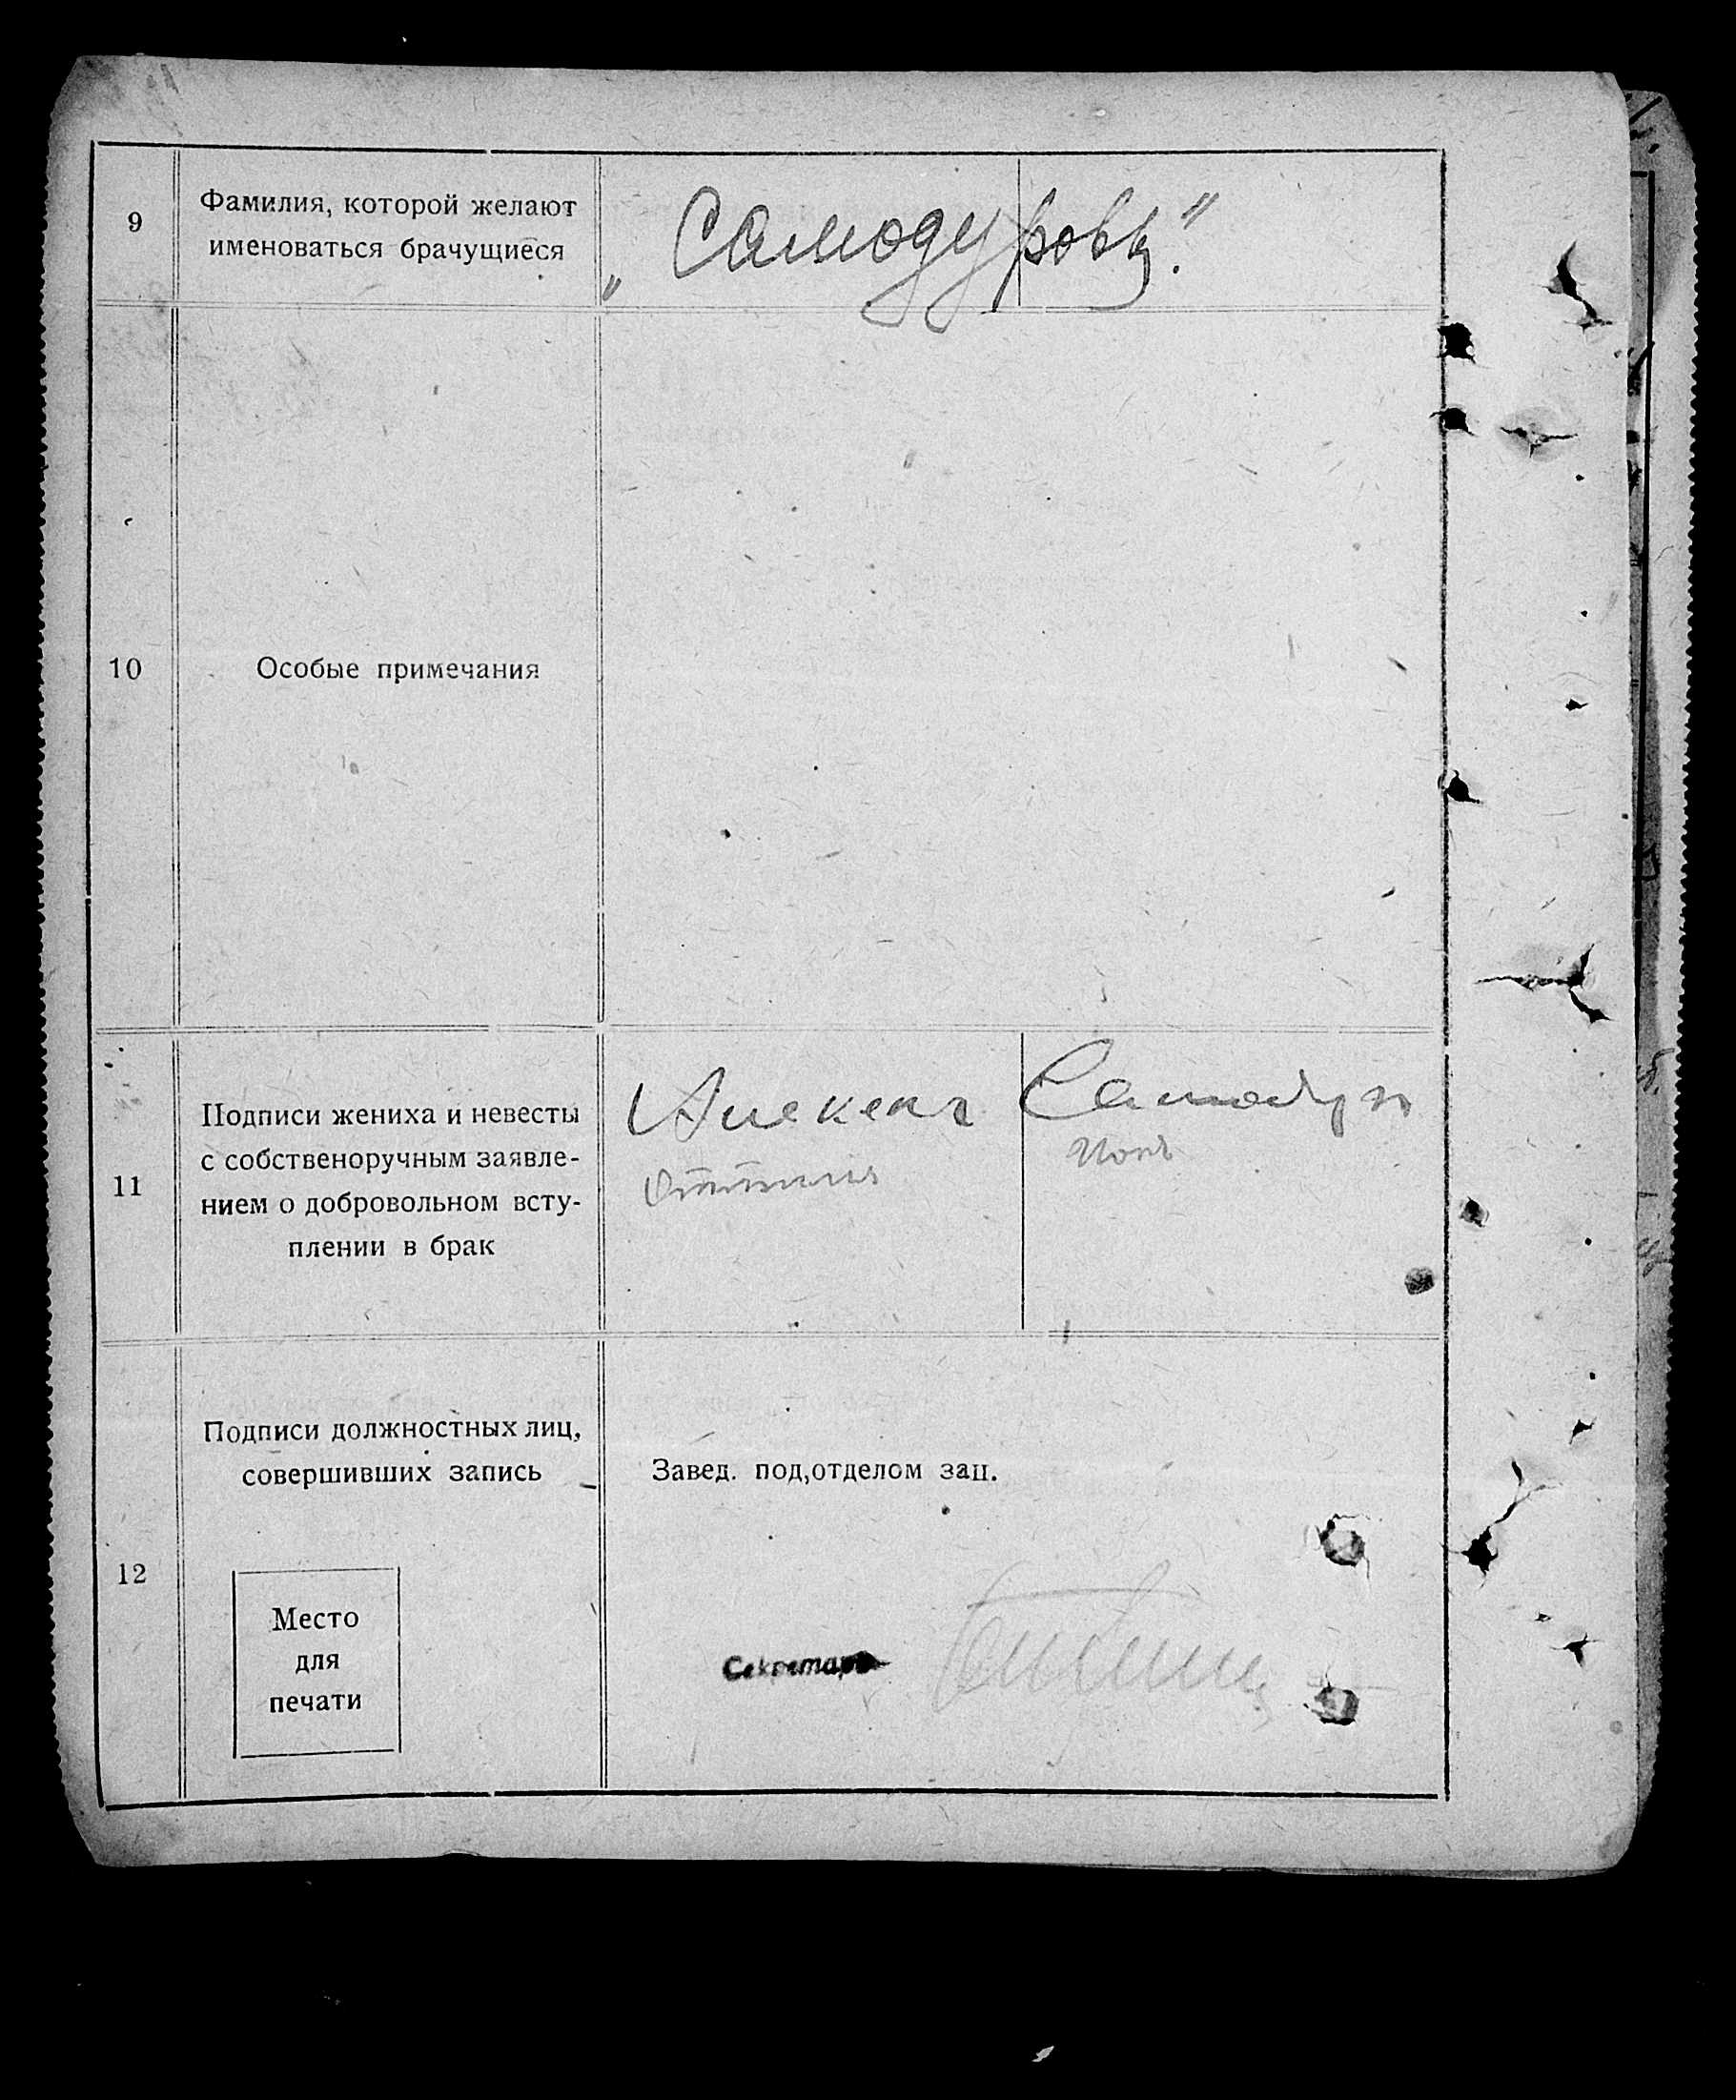 9
Фамилия, которой желают
именоваться брачущиеся
„Самодуровы."
10
Особые примечания
11
Подписи жениха и невесты
с собственоручным заявле-
нием о добровольном всту-
плении в брак
12
Подписи должностных лиц,
совершивших запись
Завед. под,отделом зап.
Секретарь
Место
для
печати